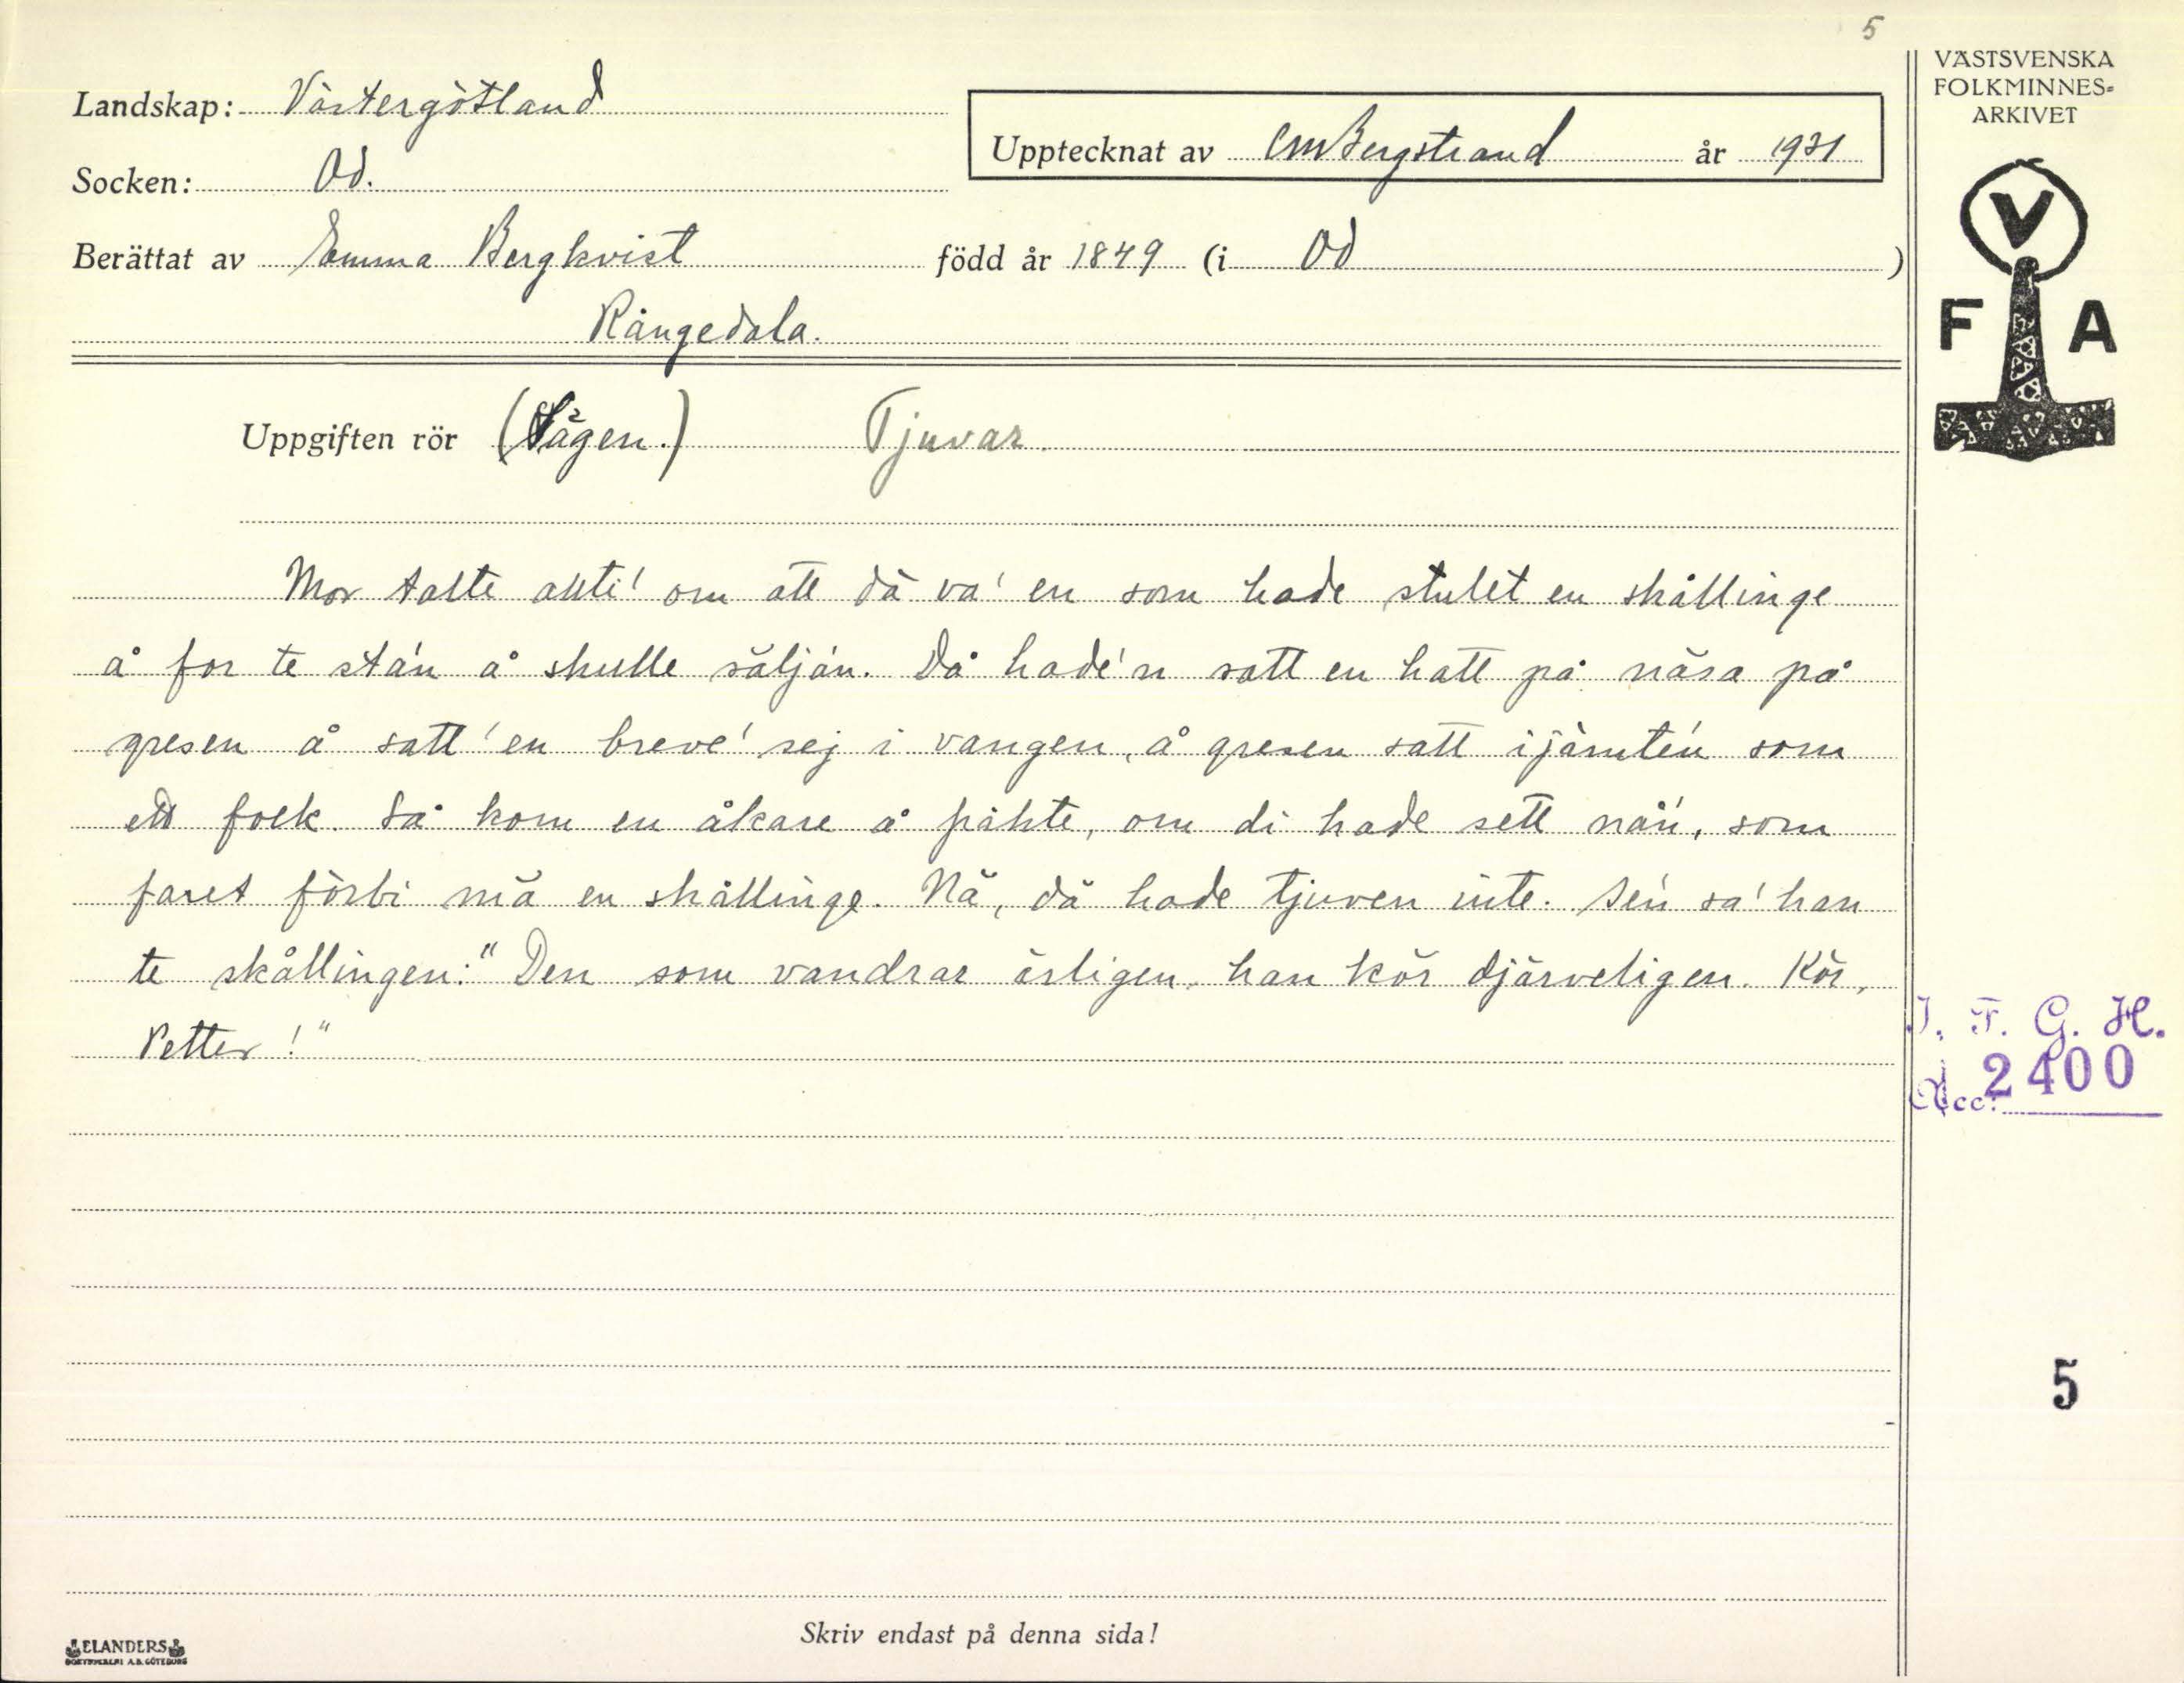 5
VÄSTSVENSKA
FOLKMINNES-
ARKIVET
Landskap: Västergötland
Upptecknat av CMBergstrand år 1931
Socken: Od.
Berättat av Emma Bergkvist född år 1849 (i Od)
Rångedala.
V
F A
Uppgiften rör (Sägen.) Tjuvar.
Mor talte allti' om att dä va' en som hade stulet en skållinge
å for te sta'n å skulle sälja'n. Då hade'n satt en hatt på näsa på
gresen å satt'en breve' sej i vangen, å gresen satt ijämte'n som
ett folk. Så kom en åkare å påkte, om di hade sett nå'n, som
faret förbi mä en skållinge. Nä, dä hade tjuven inte. Sen sa' han
te skållingen: "Den som vandrar ärligen, han kör djärveligen. Kör,
Petter!"
I. F. G. H.
Acc: 2400
5
Skriv endast på denna sida!
ELANDERS
BOKTRYCKERI A.B. GÖTEBORG